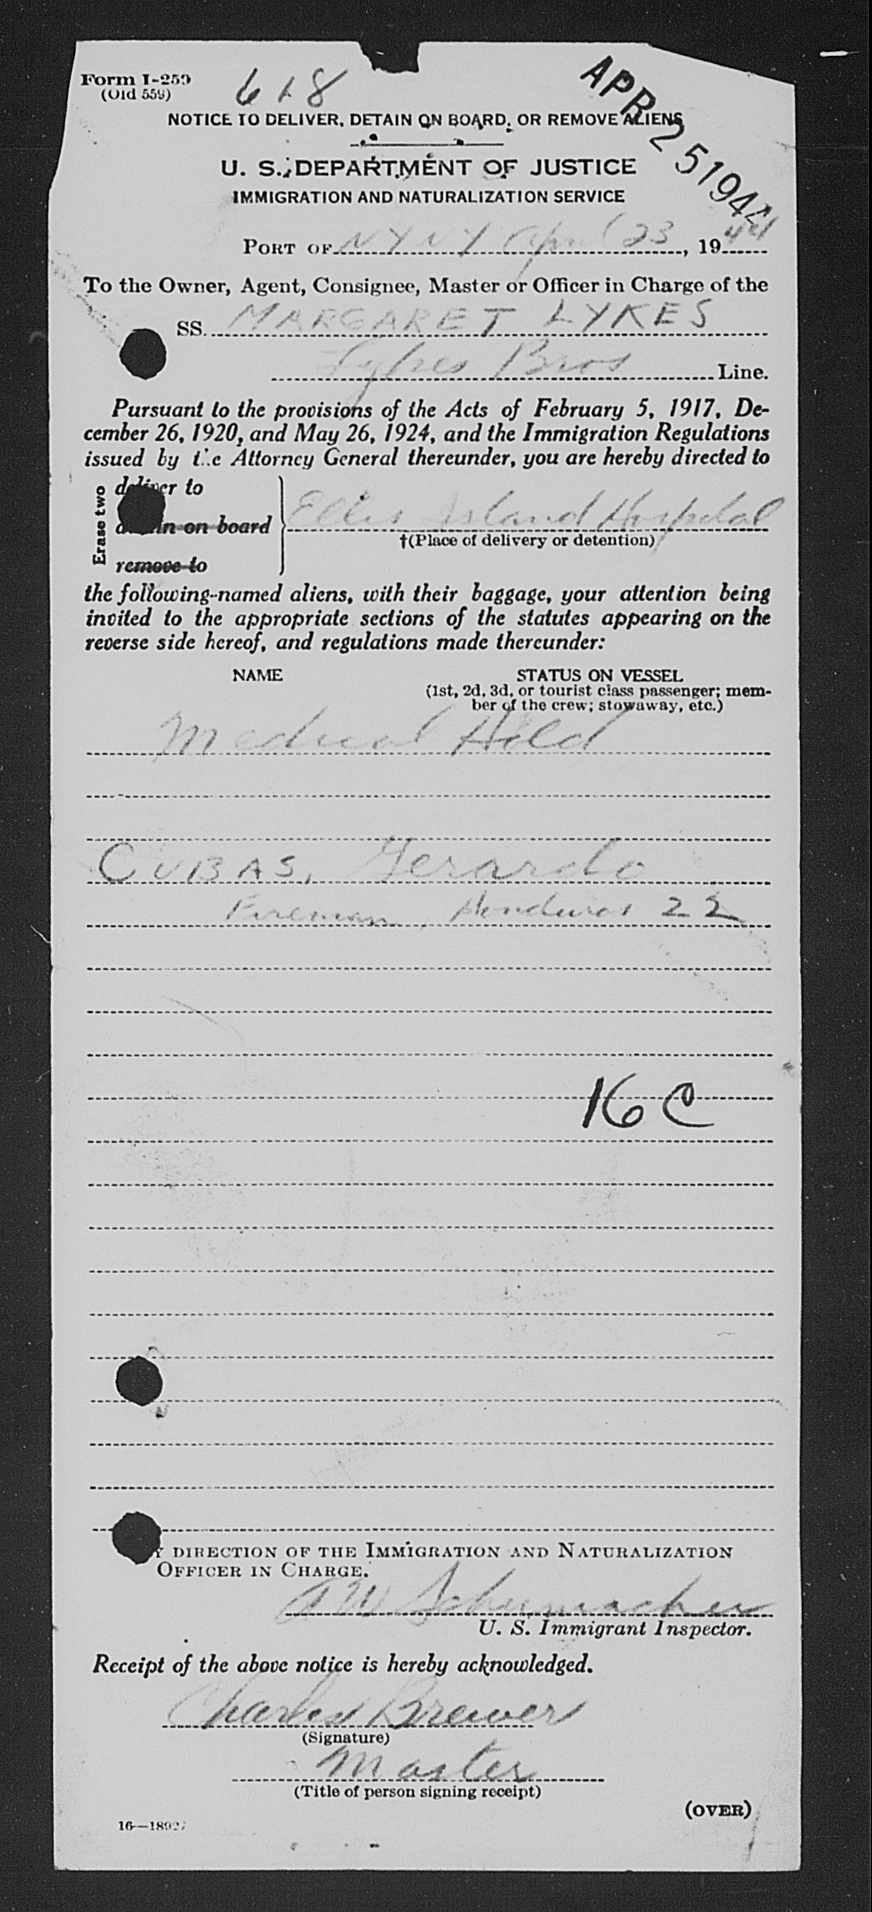 Form I-259
(Old 559)
618
APR 25 1944
NOTICE TO DELIVER, DETAIN ON BOARD, OR REMOVE ALIENS
U. S. DEPARTMENT OF JUSTICE
IMMIGRATION AND NATURALIZATION SERVICE
PORT OF N Y N Y April 23, 1944
To the Owner, Agent, Consignee, Master or Officer in Charge of the
SS. MARGARET LYKES
Lykes Bros Line.
Pursuant to the provisions of the Acts of February 5, 1917, De-
cember 26, 1920, and May 26, 1924, and the Immigration Regulations
issued by the Attorney General thereunder, you are hereby directed to
Erase two
deliver to
detain on board
remove to
Ellis Island Hospital
†(Place of delivery or detention)
the following-named aliens, with their baggage, your attention being
invited to the appropriate sections of the statutes appearing on the
reverse side hereof, and regulations made thereunder:
NAME STATUS ON VESSEL
(1st, 2d, 3d, or tourist class passenger; mem-
ber of the crew; stowaway, etc.)
Medical Hold
CUBAS, Gerardo
Fireman, Honduras 22
16 C
BY DIRECTION OF THE IMMIGRATION AND NATURALIZATION
OFFICER IN CHARGE.
A W Schumacher
U. S. Immigrant Inspector.
Receipt of the above notice is hereby acknowledged.
Charles Brewer
(Signature)
Master
(Title of person signing receipt)
(OVER)
16—18927